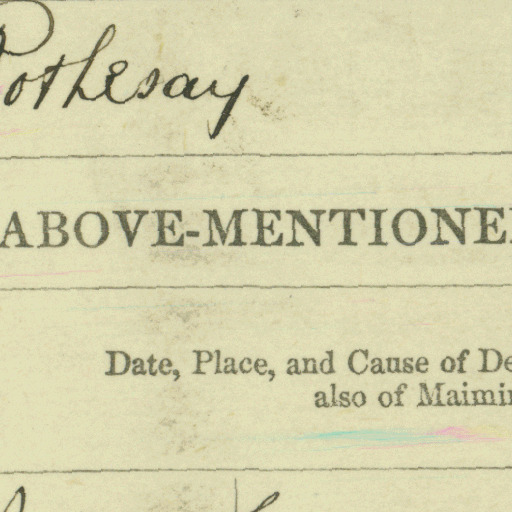 Rothesay
ABOVE-MENTIONE
Date, Place, and Cause of De
also of Maimin